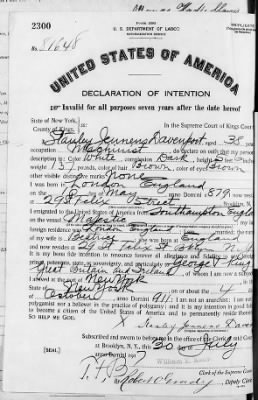 2300
Form 2203
U. S. DEPARTMENT OF LABOR
No. 81648
UNITED STATES OF AMERICA
DECLARATION OF INTENTION
Invalid for all purposes seven years after the date hereof
State of New York,
County of Kings,
In the Supreme Court of Kings County
Stanley Jennens Davenport, aged 38
occupation Machinist, do declare on oath that my personal
description is: Color White, complexion Dark, height 5 feet
weight 137 pounds, color of hair Brown, color of eyes Brown
other visible distinctive marks None
I was born in London England
on the May
29 St Felix Street
I emigrated to the United States of America from Southampton Engla
on the vessel Majestic
foreign residence was London England
wife is Beatrice England
and now resides at 29 St Felix St Bklyn N.Y.
It is my bona fide intention to renounce forever all allegiance and fidelity to any foreign
prince, potentate, state, or sovereignty, and particularly to George V King
Great Britain and Ireland, of whom I am now a subject
New York
New York on or about the 4
October 1911; I am not an anarchist; I am not a
polygamist nor a believer in the practice of polygamy; and it is my intention in good faith
to become a citizen of the United States of America and to permanently reside therein:
SO HELP ME GOD.
X Stanley Jennens Dave
Subscribed and sworn to before me in the office of the Clerk of
at Brooklyn, N.Y., this 30 day July
[SEAL.]
Clerk of the Supreme Court
Deputy Clerk